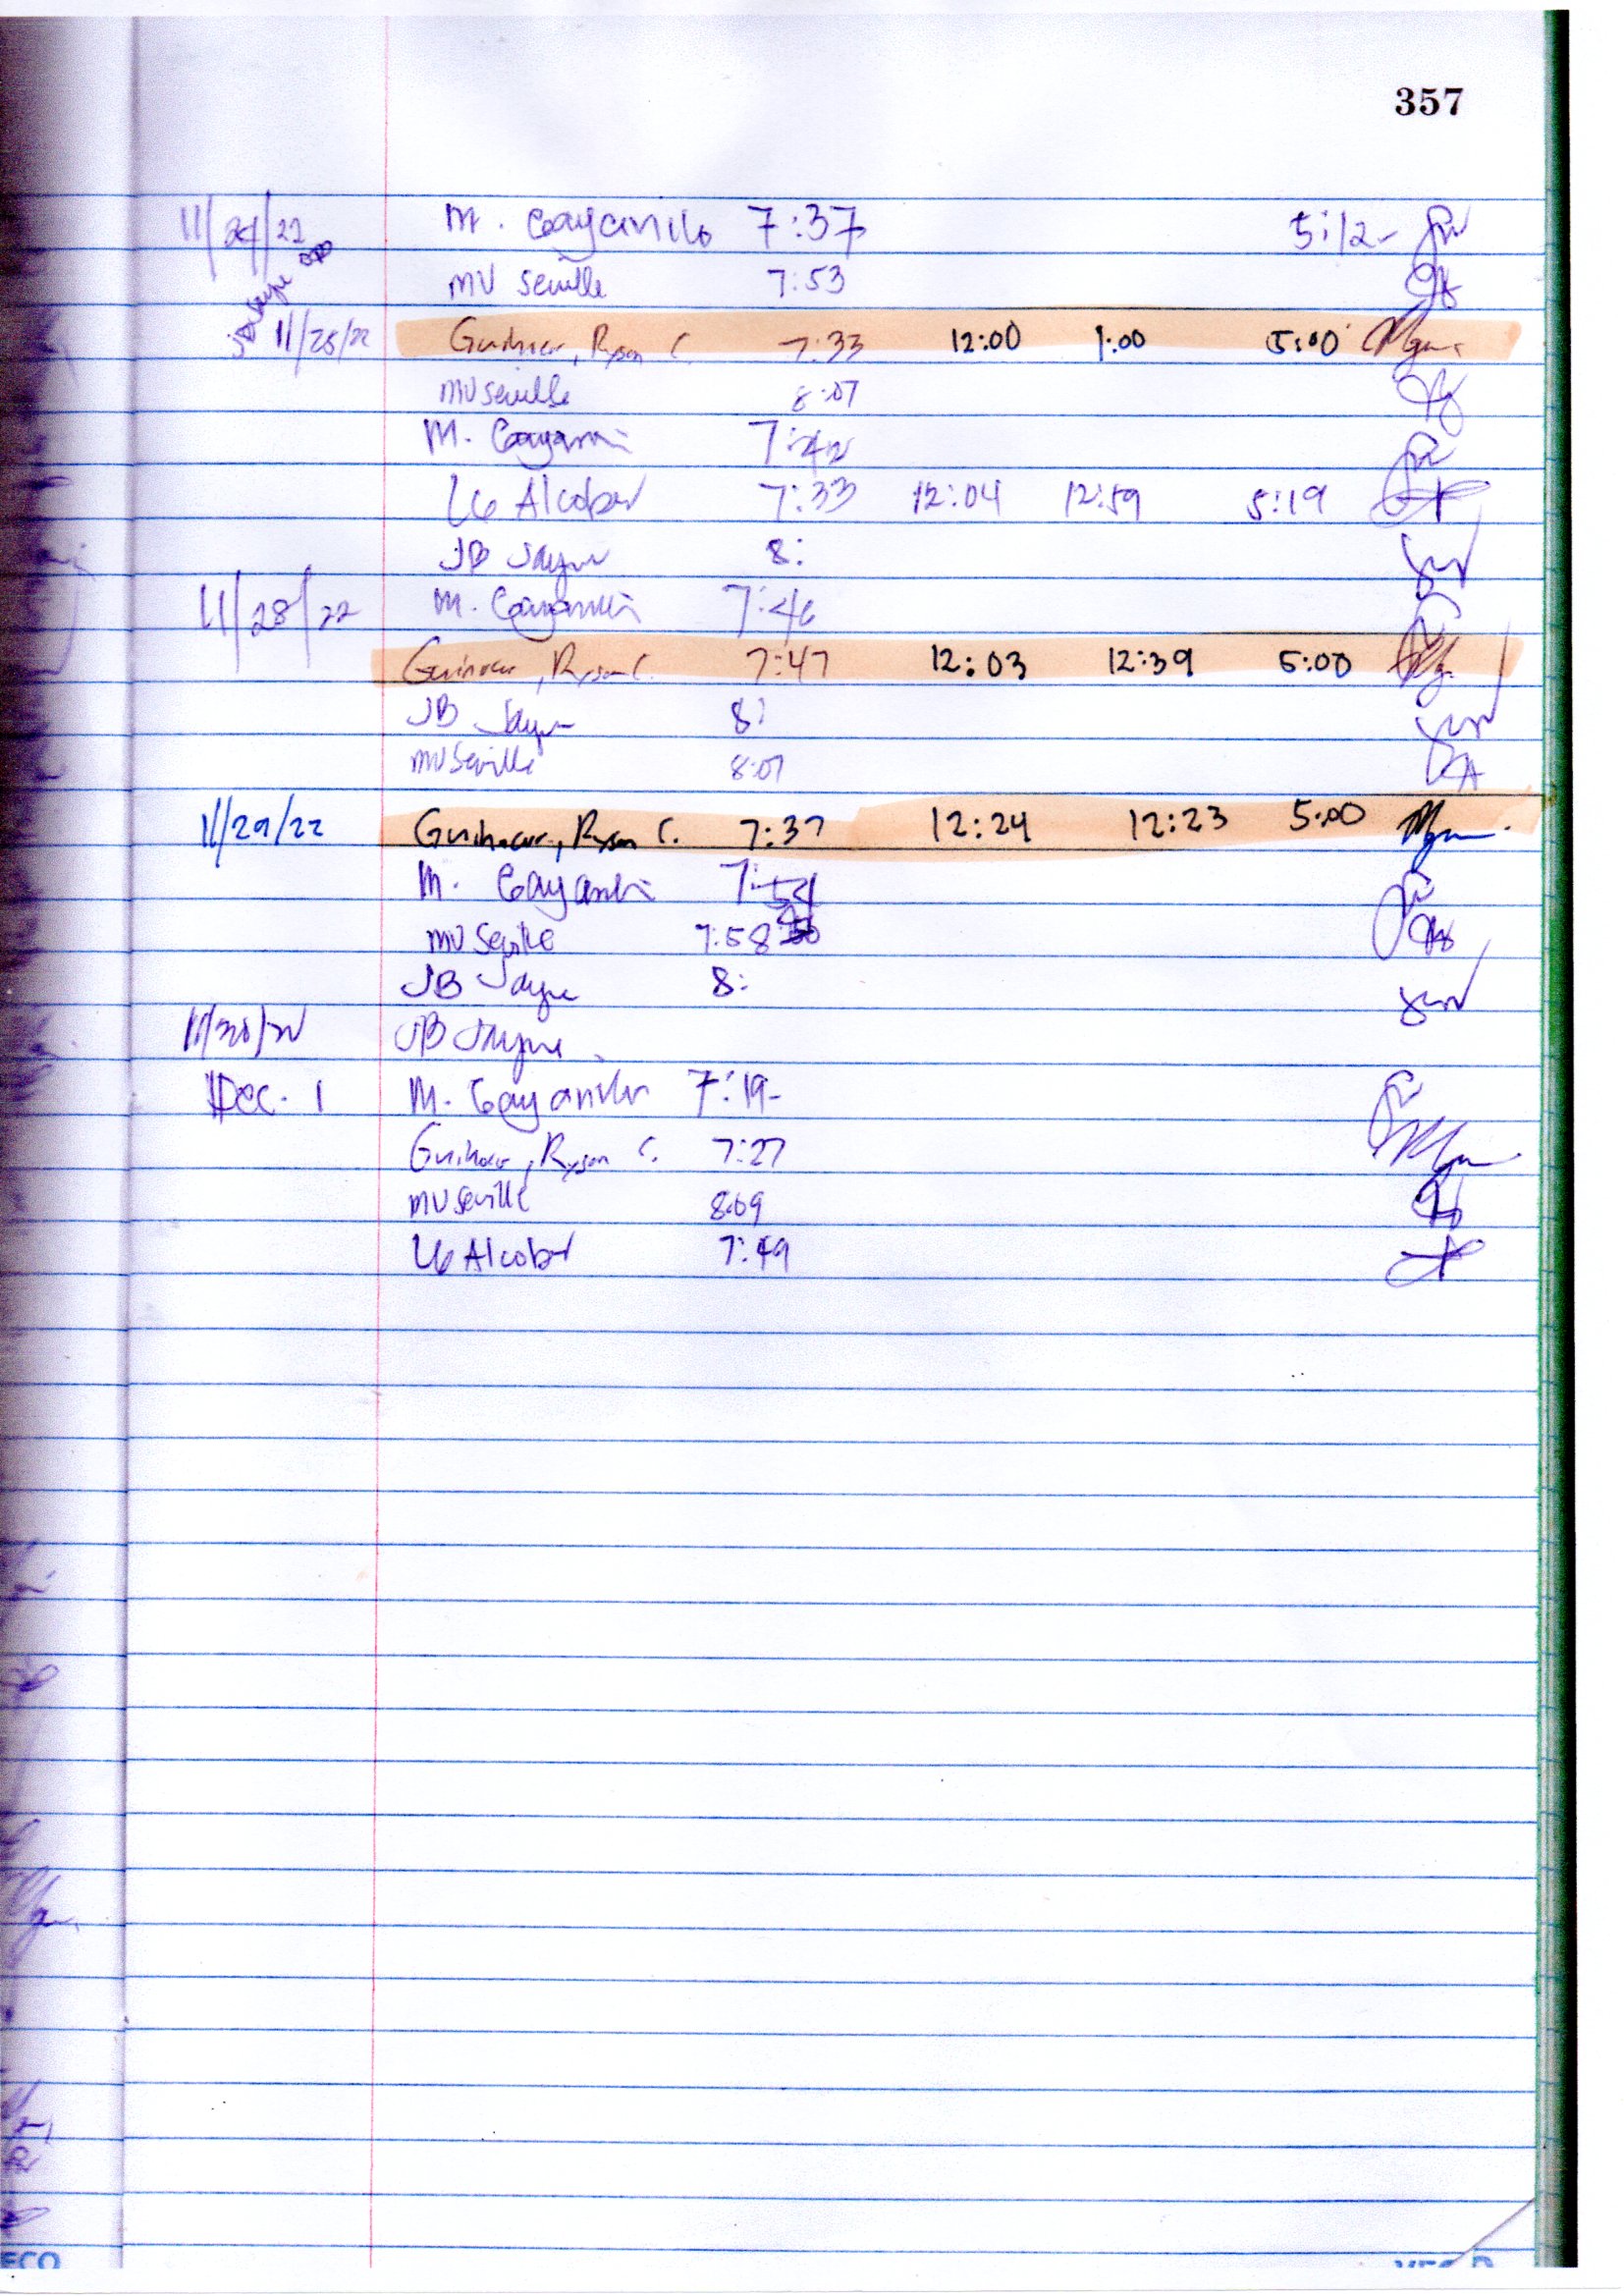 357
11/24/22 M. Cayanilo 7:37 5:12
MV Seville 7:53
JB Jayme
11/25/22 Ryson C. 7:33 12:00 1:00 5:00
MV Seville 8:07
M. 7:42
LG Alcober 7:33 12:04 12:59 5:19
JB Jayme 8:
11/28/22 M. 7:46
Ryson C. 7:47 12:03 12:39 5:00
JB Jayme 8:
MV Seville 8:07
11/29/22 Ryson C. 7:37 12:24 12:23 5:00
M. 7:54
MV Seville 7:58
JB Jayme 8:
11/30/22 JB Jayme
Dec. 1 M. Cayanilo 7:19
Ryson C. 7:27
MV Seville 8:09
LG Alcober 7:49